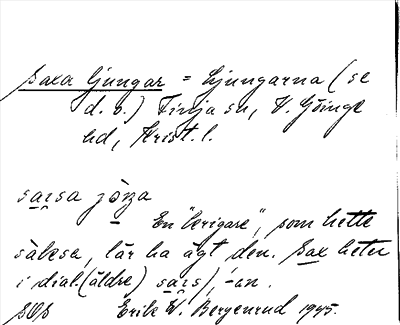 Saxa ljungar = Ljungarna (se
d. o.) Finja sn, V. Göinge
hd, Krist. l.
saisa jöŋa
En "knigare", som hette
såkesa, lär ha ägt den. Sax heter
i dial. (äldre) sais), -an.
SOS Erik W. Bergenrud 1945.